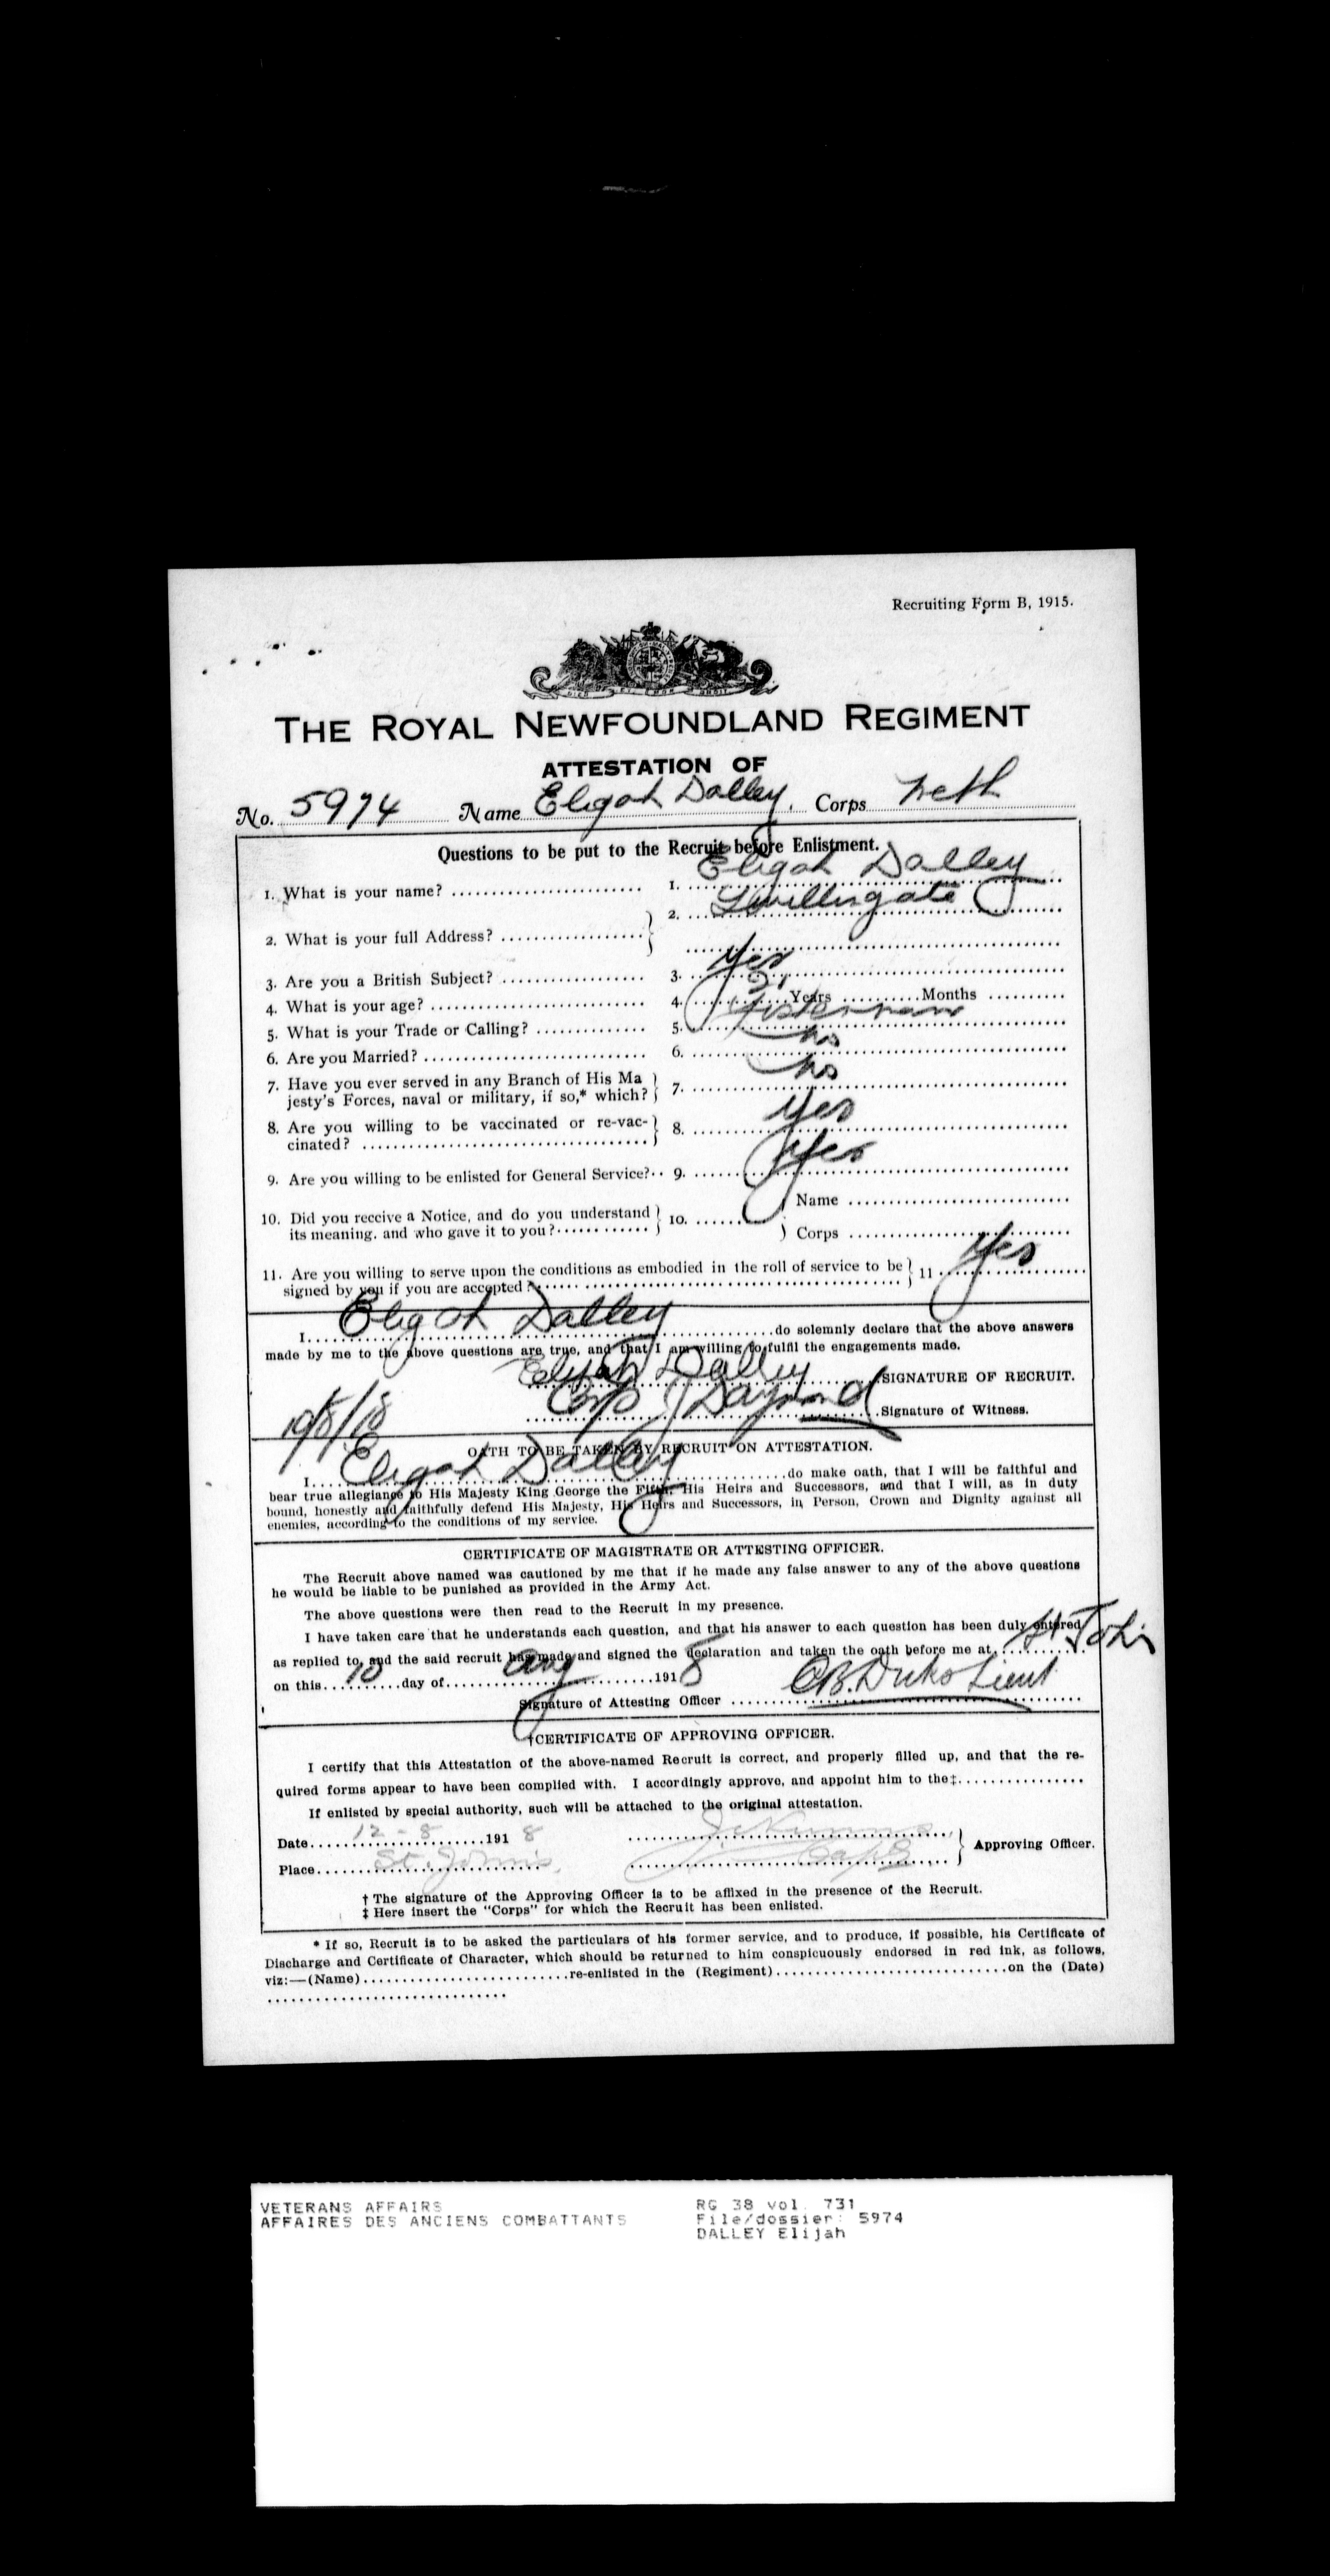 Recruiting Form B, 1915.
THE ROYAL NEWFOUNDLAND REGIMENT
ATTESTATION OF
No. 5974 Name Elijah Dalley. Corps
Questions to be put to the Recruit before Enlistment.
1. What is your name? 1. Elijah Dalley
2. What is your full Address? 2. Twillingate
3. Are you a British Subject? 3. Yes
4. What is your age? 4. 21 Years Months
5. What is your Trade or Calling? 5. Fisherman
6. Are you Married? 6. No
7. Have you ever served in any Branch of His Ma
jesty's Forces, naval or military, if so,* which? 7. No
8. Are you willing to be vaccinated or re-vac-
cinated? 8. Yes
9. Are you willing to be enlisted for General Service? 9. Yes
10. Did you receive a Notice, and do you understand
its meaning. and who gave it to you? 10. Name
Corps
11. Are you willing to serve upon the conditions as embodied in the roll of service to be
signed by you if you are accepted? 11 Yes
I Elijah Dalley do solemnly declare that the above answers
made by me to the above questions are true, and that I am willing to fulfil the engagements made.
Elijah Dalley SIGNATURE OF RECRUIT.
10/8/18 Corp J Daymond Signature of Witness.
OATH TO BE TAKEN BY RECRUIT ON ATTESTATION.
I Elijah Dalley do make oath, that I will be faithful and
bear true allegiance to His Majesty King George the Fifth, His Heirs and Successors, and that I will, as in duty
bound, honestly and faithfully defend His Majesty, His Heirs and Successors, in Person, Crown and Dignity against all
enemies, according to the conditions of my service.
CERTIFICATE OF MAGISTRATE OR ATTESTING OFFICER.
The Recruit above named was cautioned by me that if he made any false answer to any of the above questions
he would be liable to be punished as provided in the Army Act.
The above questions were then read to the Recruit in my presence.
I have taken care that he understands each question, and that his answer to each question has been duly entered
as replied to, and the said recruit has made and signed the declaration and taken the oath before me at St Johns
on this 10 day of Aug 1918
Signature of Attesting Officer C.B. Dicks Lieut
†CERTIFICATE OF APPROVING OFFICER.
I certify that this Attestation of the above-named Recruit is correct, and properly filled up, and that the re-
quired forms appear to have been complied with. I accordingly approve, and appoint him to the‡
If enlisted by special authority, such will be attached to the original attestation.
Date 12-8 1918
Place St. John's Capt Approving Officer.
† The signature of the Approving Officer is to be affixed in the presence of the Recruit.
‡ Here insert the "Corps" for which the Recruit has been enlisted.
* If so, Recruit is to be asked the particulars of his former service, and to produce, if possible, his Certificate of
Discharge and Certificate of Character, which should be returned to him conspicuously endorsed in red ink, as follows,
viz:—(Name) re-enlisted in the (Regiment) on the (Date)
VETERANS AFFAIRS RG 38 vol. 731
AFFAIRES DES ANCIENS COMBATTANTS File/dossier: 5974
DALLEY Elijah